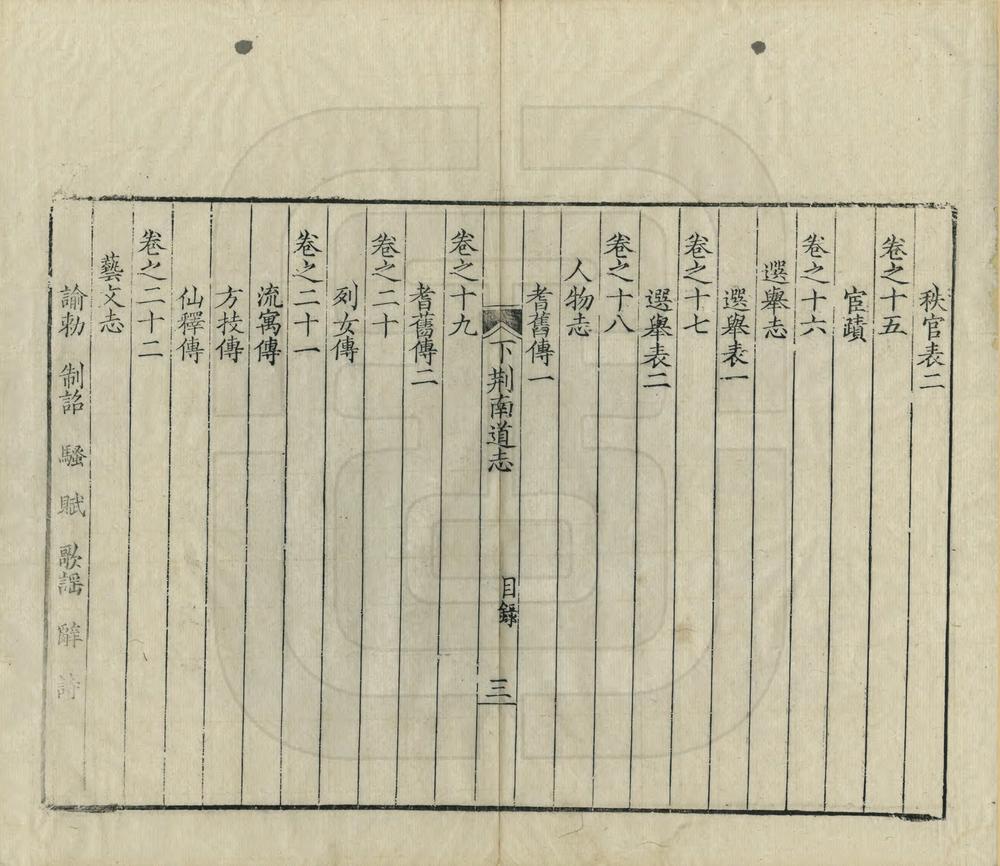 秩官表二
卷之十五
宦蹟
卷之十六
選舉志
選舉表一
卷之十七
選舉表二
卷之十八
人物志
耆舊傳一
下荆南道志 目錄 三
卷之十九
耆舊傳二
卷之二十
列女傳
卷之二十一
流寓傳
方技傳
仙釋傳
卷之二十二
藝文志
諭勅 制詔 騷 賦 歌謡 辭 詩